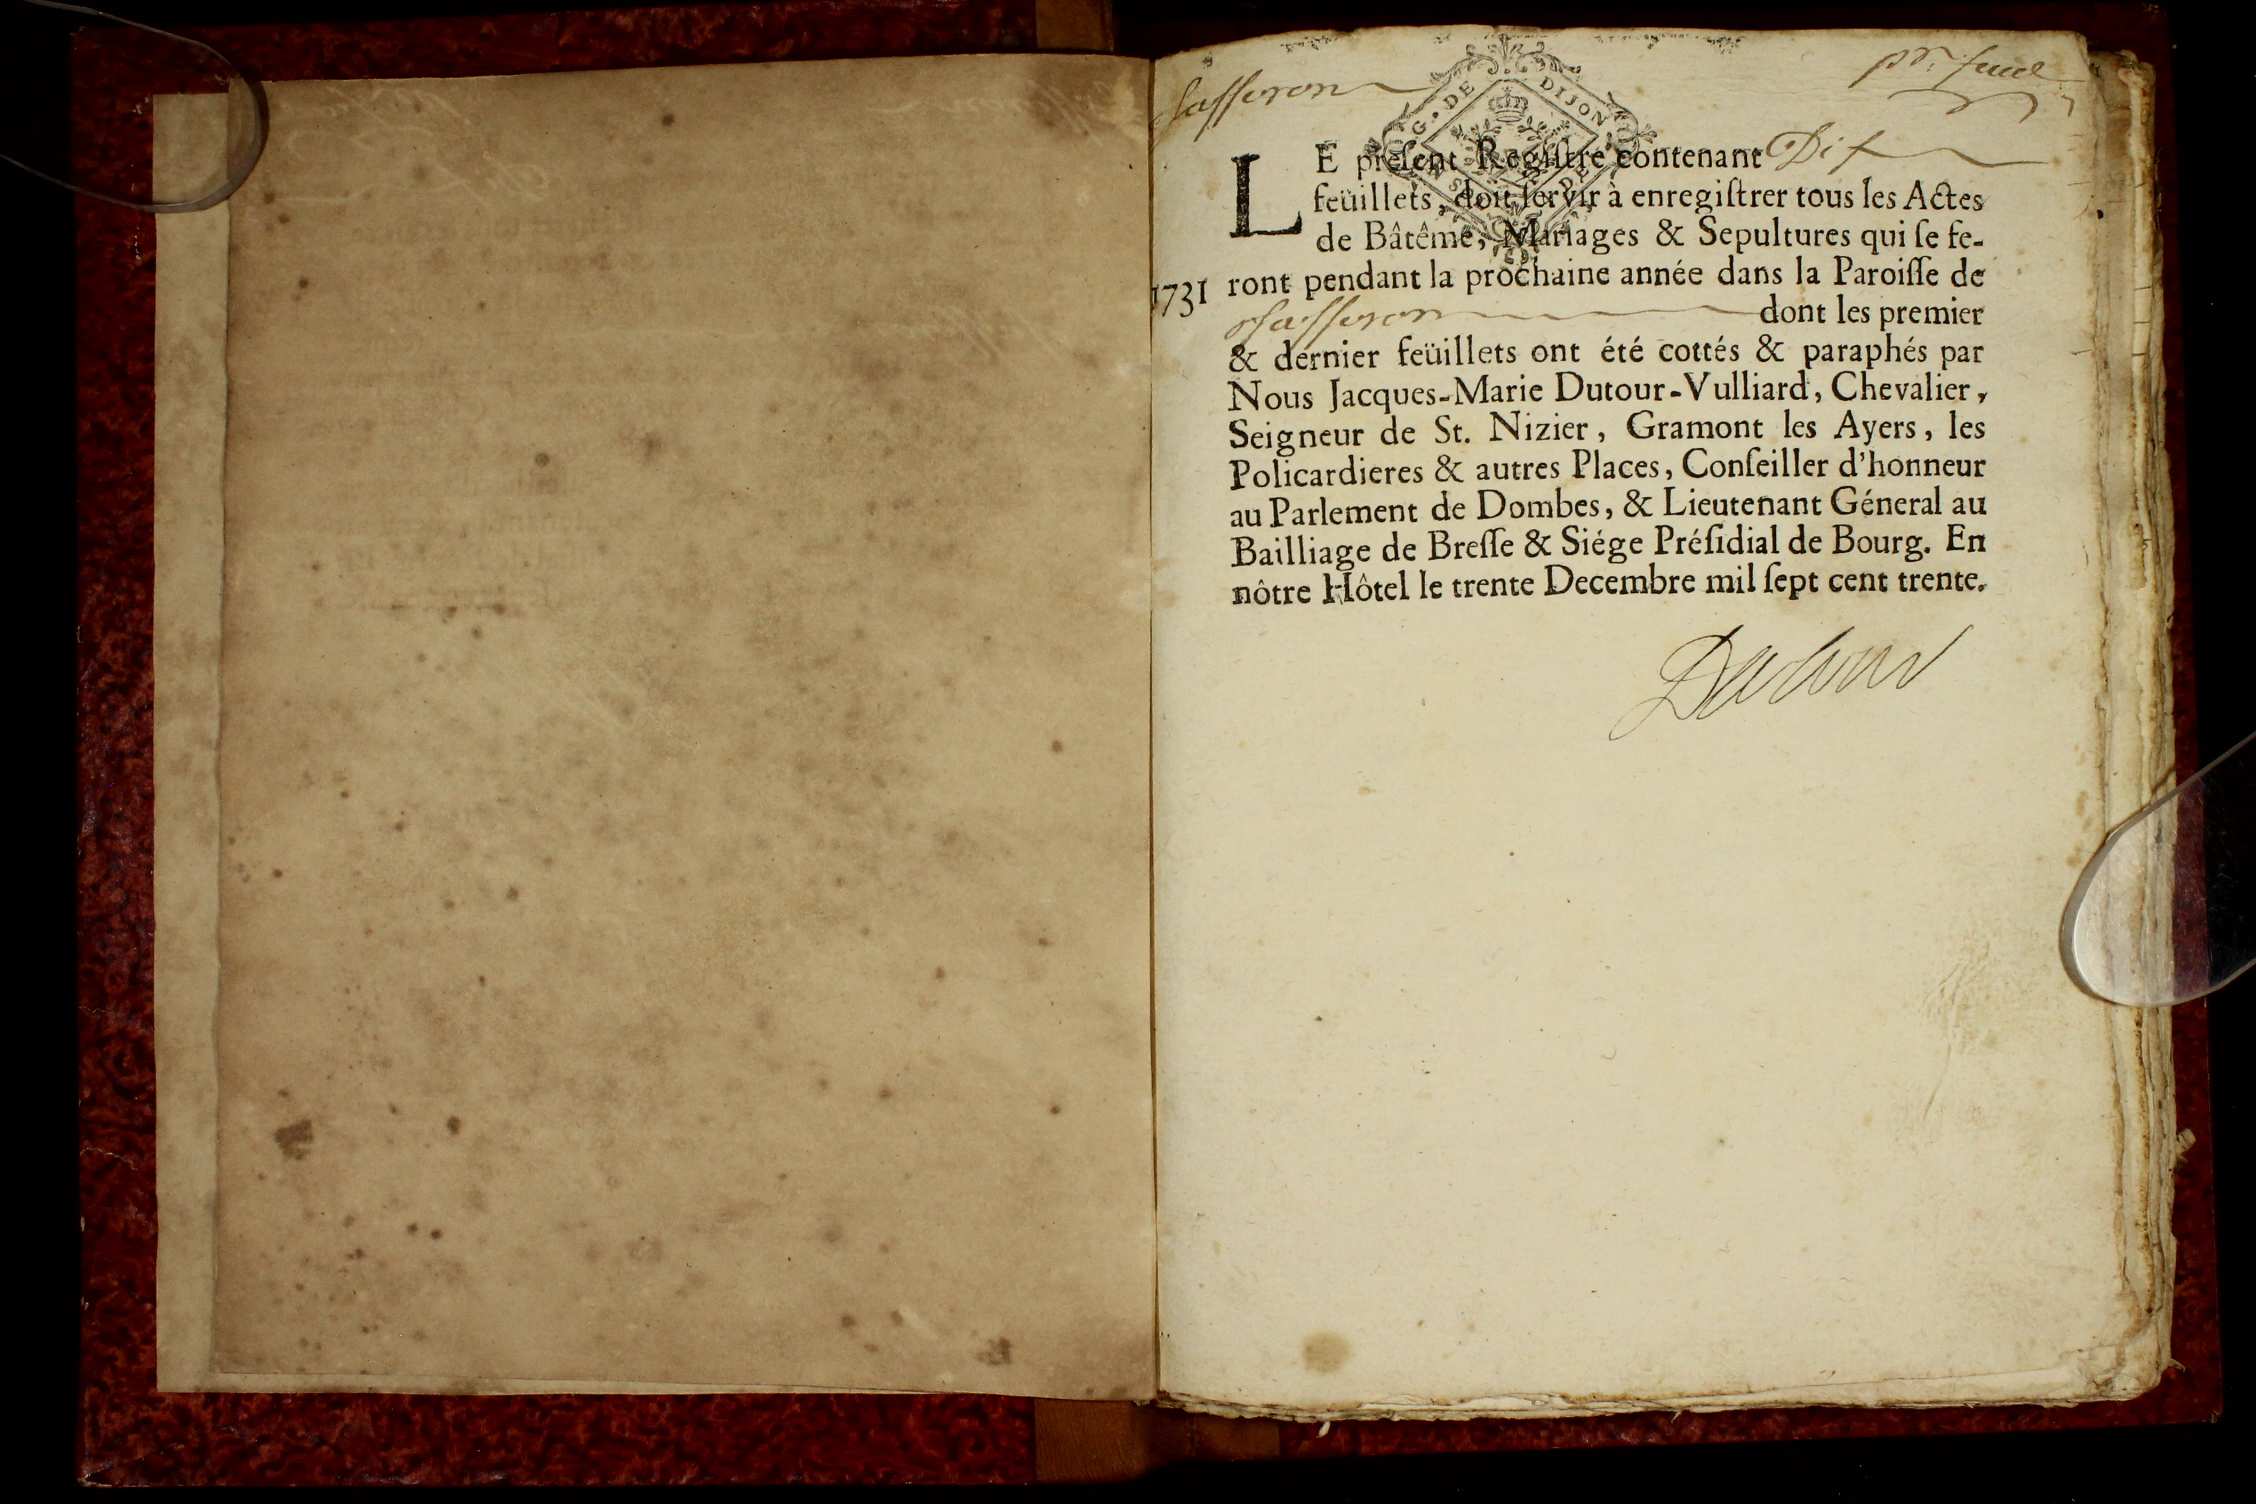 Jasseron pr. feuil
G. DE DIJON
LE preſent Regiſtre contenant Dix
feüillets, doit ſervir à enregiſtrer tous les Actes
de Bâtême, Mariages & Sepultures qui ſe fe-
1731 ront pendant la prochaine année dans la Paroiſſe de
Jasseron dont les premier
& dernier feüillets ont été cottés & paraphés par
Nous Jacques-Marie Dutour-Vulliard, Chevalier,
Seigneur de St. Nizier, Gramont les Ayers, les
Policardieres & autres Places, Conſeiller d'honneur
au Parlement de Dombes, & Lieutenant Géneral au
Bailliage de Breſſe & Siége Préſidial de Bourg. En
nôtre Hôtel le trente Decembre mil ſept cent trente.
Dutour